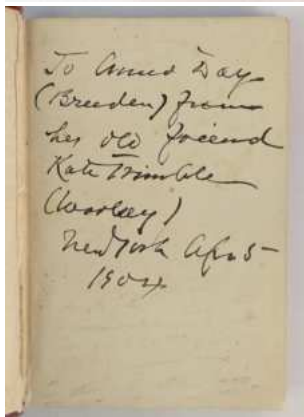 To Annie Day
(Breeden) from
her old friend
Kate Trimble
(Woolsey)
New York Apr 5
1904